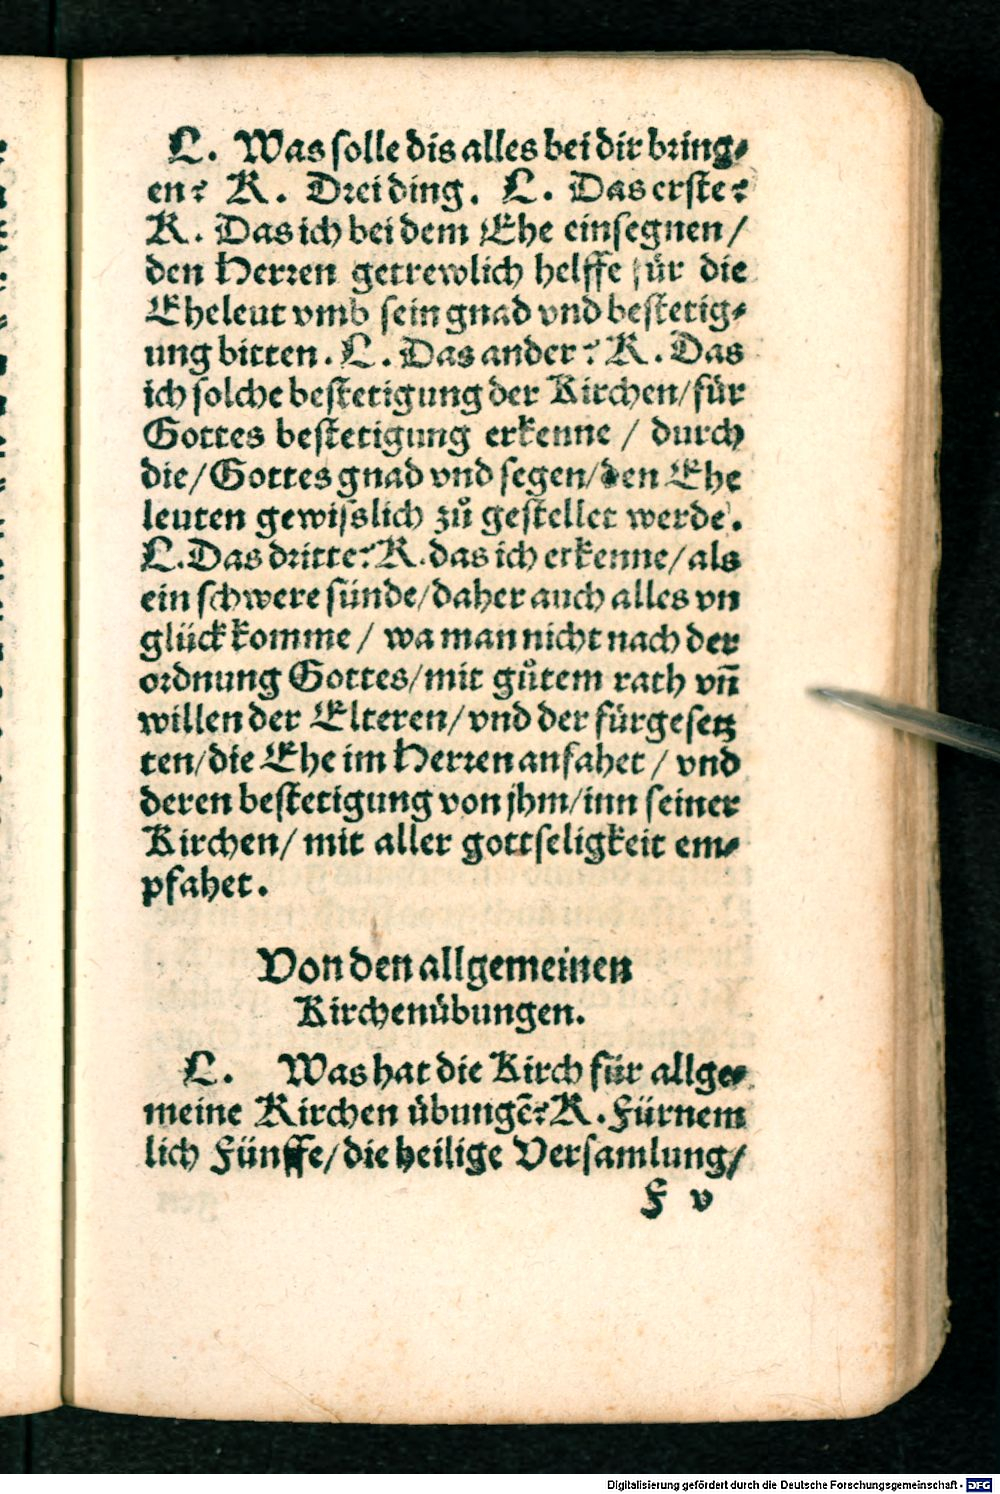 L. Was solle dis alles bei dir bring⸗
en? K. Drei ding. L. Das erste?
K. Das ich bei dem Ehe einsegnen/
den Herren getrewlich helffe für die
Eheleut vmb sein gnad vnd bestetig⸗
ung bitten. L. Das ander? K. Das
ich solche bestetigung der Kirchen/für
Gottes bestetigung erkenne / durch
die/Gottes gnad vnd segen/den Ehe
leuten gewisslich zů gestellet werde.
L. Das dritte? K. das ich erkenne/als
ein schwere sünde/daher auch alles vn
glück komme / wa man nicht nach der
ordnung Gottes/mit gůtem rath vñ
willen der Elteren/vnd der fürgesetz
ten/die Ehe im Herren anfahet / vnd
deren bestetigung von jhm/inn seiner
Kirchen/ mit aller gottseligkeit em⸗
pfahet.
Von den allgemeinen
Kirchenübungen.
L. Was hat die Kirch für allge⸗
meine Kirchen übungē? K. Fürnem
lich Fünffe/die heilige Versamlung/
F v
Digitalisierung gefördert durch die Deutsche Forschungsgemeinschaft - DFG